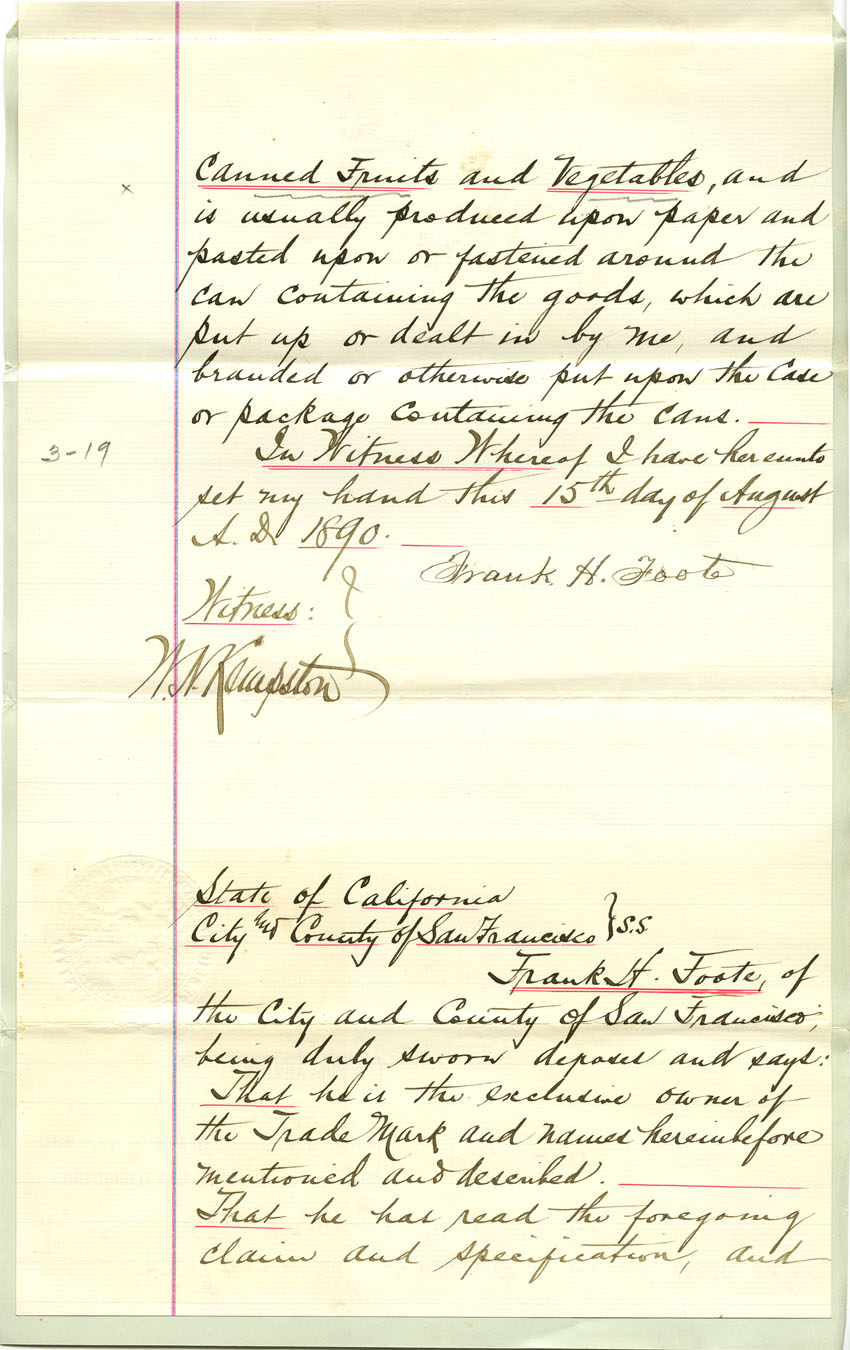 Canned Fruits and Vegetables, and
is usually produced upon paper and
pasted upon or fastened around the
can containing the goods, which are
put up or dealt in by me, and
branded or otherwise put upon the Case
or package containing the cans.
3-19
In Witness Whereof I have hereunto
set my hand this 15th day of August
A. D. 1890.
Frank H. Foote
Witness:
W. N. Kempston
State of California
City and County of San Francisco } S.S.
Frank H. Foote, of
the City and County of San Francisco,
being duly sworn deposes and says:
That he is the exclusive owner of
the Trade Mark and names hereinbefore
mentioned and described.
That he has read the foregoing
claim and specification, and